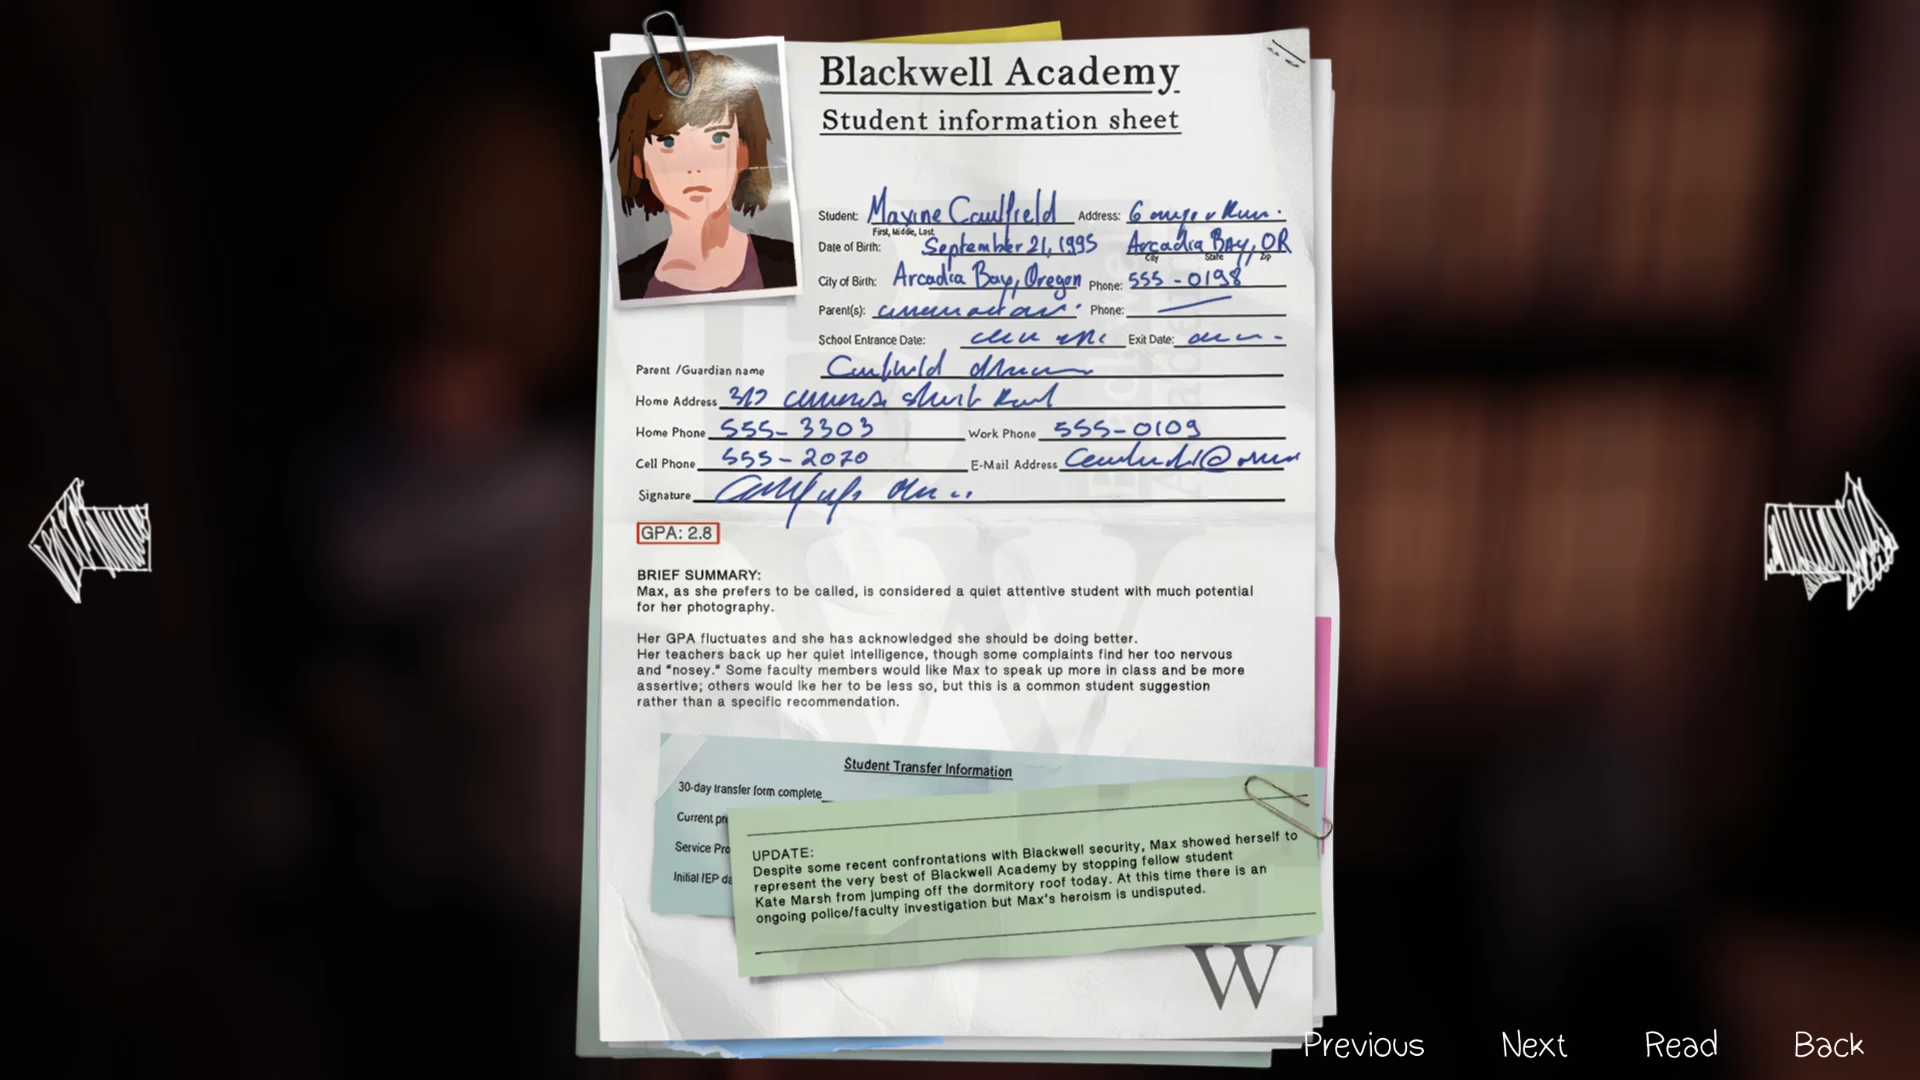 Blackwell Academy
Student information sheet
Student: Maxine Caulfield Address:
First, Middle, Last
Date of Birth: September 21, 1995 Arcadia Bay, OR
City State Zip
City of Birth: Arcadia Bay, Oregon Phone: 555-0198
Parent(s): Phone:
School Entrance Date: Exit Date:
Parent /Guardian name
Home Address
Home Phone 555-3303 Work Phone 555-0109
Cell Phone 555-2070 E-Mail Address
Signature
GPA: 2.8
BRIEF SUMMARY:
Max, as she prefers to be called, is considered a quiet attentive student with much potential
for her photography.
Her GPA fluctuates and she has acknowledged she should be doing better.
Her teachers back up her quiet intelligence, though some complaints find her too nervous
and "nosey." Some faculty members would like Max to speak up more in class and be more
assertive; others would ike her to be less so, but this is a common student suggestion
rather than a specific recommendation.
Student Transfer Information
30-day transfer form complete
Current
Service
Initial IEP
UPDATE:
Despite some recent confrontations with Blackwell security, Max showed herself to
represent the very best of Blackwell Academy by stopping fellow student
Kate Marsh from jumping off the dormitory roof today. At this time there is an
ongoing police/faculty investigation but Max's heroism is undisputed.
W
Previous Next Read Back